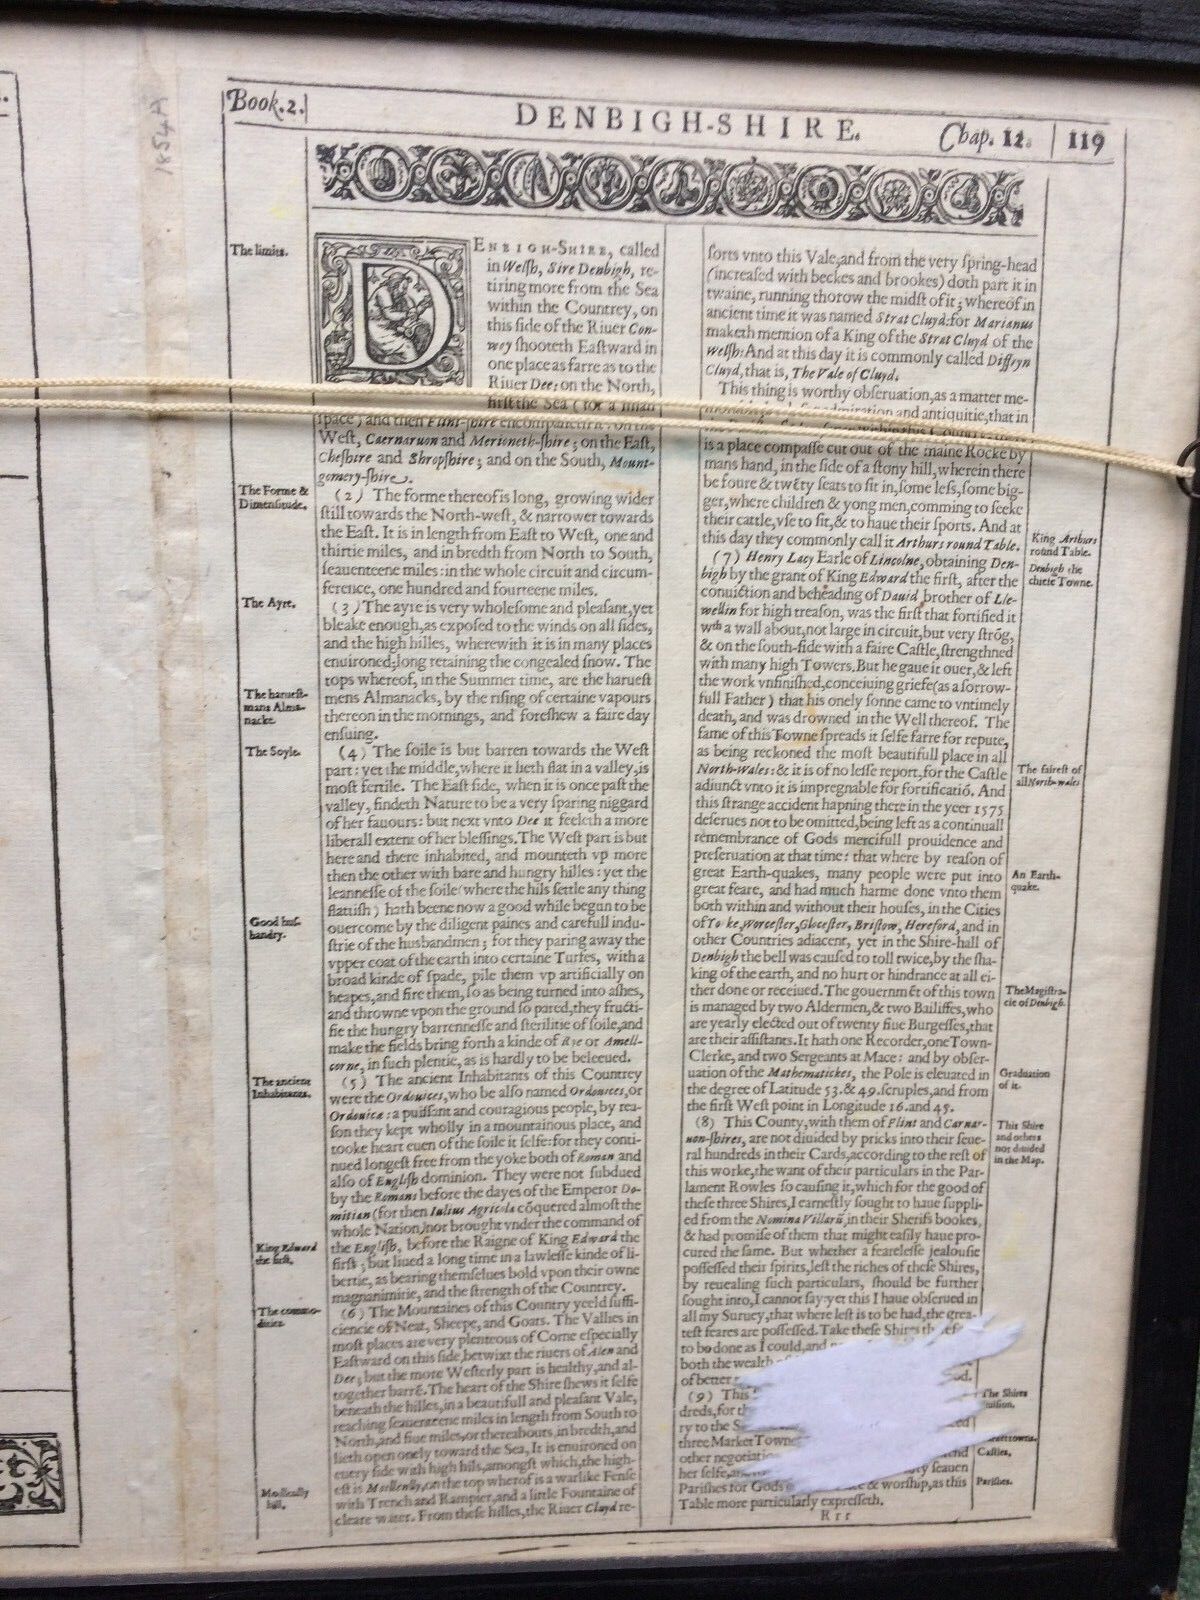 Book. 2.
DENBIGH-SHIRE.
Chap. 12. 119
1854A
The limits.
DENBIGH-SHIRE, called
in Welſh, Sire Denbigh, re-
tiring more from the Sea
within the Countrey, on
this ſide of the Riuer Con-
wey ſhooteth Eaſtward in
one place as farre as to the
Riuer Dee: on the North,
firſt the Sea (for a ſmall
ſpace) and then Flint-ſhire encompaſſeth it: on the
Weſt, Caernaruon and Merioneth-ſhire; on the Eaſt,
Cheſhire and Shropſhire; and on the South, Mount-
gomery-ſhire.
The Forme &
Dimenſitude.
(2) The forme thereof is long, growing wider
ſtill towards the North-weſt, & narrower towards
the Eaſt. It is in length from Eaſt to Weſt, one and
thirtie miles, and in bredth from North to South,
ſeauenteene miles: in the whole circuit and circum-
ference, one hundred and fourteene miles.
The Ayre.
(3) The ayre is very wholeſome and pleaſant, yet
bleake enough, as expoſed to the winds on all ſides,
and the high hilles, wherewith it is in many places
enuironed, long retaining the congealed ſnow. The
tops whereof, in the Summer time, are the harueſt
The harueſt-
mans Alma-
nacke.
mens Almanacks, by the riſing of certaine vapours
thereon in the mornings, and foreſhew a faire day
enſuing.
The Soyle.
(4) The ſoile is but barren towards the Weſt
part: yet the middle, where it lieth flat in a valley, is
moſt fertile. The Eaſt ſide, when it is once paſt the
valley, findeth Nature to be a very ſparing niggard
of her fauours: but next vnto Dee it feeleth a more
liberall extent of her bleſſings. The Weſt part is but
here and there inhabited, and mounteth vp more
then the other with bare and hungry hilles: yet the
leanneſſe of the ſoile (where the hils ſettle any thing
flattiſh) hath beene now a good while begun to be
Good huſ-
bandry.
ouercome by the diligent paines and carefull indu-
ſtrie of the husbandmen; for they paring away the
vpper coat of the earth into certaine Turfes, with a
broad kinde of ſpade, pile them vp artificially on
heapes, and fire them, ſo as being turned into aſhes,
and throwne vpon the ground ſo pared, they fructi-
fie the hungry barrenneſſe and ſterilitie of ſoile, and
make the fields bring forth a kinde of Rye or Amell-
corne, in ſuch plentie, as is hardly to be beleeued.
The ancient
Inhabitants.
(5) The ancient Inhabitants of this Countrey
were the Ordouices, who be alſo named Ordeuices, or
Ordouicæ: a puiſſant and couragious people, by rea-
ſon they kept wholly in a mountainous place, and
tooke heart euen of the ſoile it ſelfe: for they conti-
nued longeſt free from the yoke both of Roman and
alſo of Engliſh dominion. They were not ſubdued
by the Romans before the dayes of the Emperor Do-
mitian (for then Iulius Agricola cõquered almoſt the
whole Nation) nor brought vnder the command of
King Edward
the firſt.
the Engliſh, before the Raigne of King Edward the
firſt; but liued a long time in a lawleſſe kinde of li-
bertie, as bearing themſelues bold vpon their owne
magnanimitie, and the ſtrength of the Countrey.
The commo-
dities.
(6) The Mountaines of this Country yeeld ſuffi-
ciencie of Neat, Sheepe, and Goats. The Vallies in
moſt places are very plenteous of Corne eſpecially
Eaſtward on this ſide, betwixt the riuers of Alen and
Dee; but the more Weſterly part is healthy, and al-
together barrē. The heart of the Shire ſhews it ſelfe
beneath the hilles, in a beautifull and pleaſant Vale,
reaching ſeauenteene miles in length from South to
North, and fiue miles, or thereabouts, in bredth, and
lieth open onely toward the Sea. It is enuironed on
euery ſide with high hils, amongſt which, the high-
eſt is Moellenly, on the top wherof is a warlike Fenſe
Moellenly
hill.
with Trench and Rampier, and a little Fountaine of
cleare water. From theſe hilles, the Riuer Cluyd re-
ſorts vnto this Vale, and from the very ſpring-head
(increaſed with beckes and brookes) doth part it in
twaine, running thorow the midſt of it; whereof in
ancient time it was named Strat Cluyd: for Marianus
maketh mention of a King of the Strat Cluyd of the
Welſh: And at this day it is commonly called Diffryn
Cluyd, that is, The Vale of Cluyd.
This thing is worthy obſeruation, as a matter me-
admiration and antiquitie, that in
within this
is a place compaſſe cut out of the maine Rocke by
mans hand, in the ſide of a ſtony hill, wherein there
be foure & twēty ſeats to ſit in, ſome leſs, ſome big-
ger, where children & yong men, comming to ſeeke
their cattle, vſe to ſit, & to haue their ſports. And at
this day they commonly call it Arthurs round Table.
King Arthurs
round Table.
Denbigh the
cheife Towne.
(7) Henry Lacy Earle of Lincolne, obtaining Den-
bigh by the grant of King Edward the firſt, after the
conuiction and beheading of Dauid, brother of Lle-
wellin for high treaſon, was the firſt that fortified it
wth a wall about, not large in circuit, but very ſtrõg,
& on the ſouth-ſide with a faire Caſtle, ſtrengthned
with many high Towers. But he gaue it ouer, & left
the work vnfiniſhed, conceiuing griefe (as a ſorrow-
full Father) that his onely ſonne came to vntimely
death, and was drowned in the Well thereof. The
fame of this Towne ſpreads it ſelfe farre for repute,
as being reckoned the moſt beautifull place in all
The faireſt of
all North-wales
North-wales: & it is of no leſſe report, for the Caſtle
adiunct vnto it is impregnable for fortificatiõ. And
this ſtrange accident hapning there in the yeer 1575
deſerues not to be omitted, being left as a continuall
remembrance of Gods mercifull prouidence and
preſeruation at that time: that where by reaſon of
An Earth-
quake.
great Earth-quakes, many people were put into
great feare, and had much harme done vnto them
both within and without their houſes, in the Cities
of Yorke, Worceſter, Gloceſter, Briſtow, Hereford, and in
other Countries adiacent, yet in the Shire-hall of
Denbigh the bell was cauſed to toll twice, by the ſha-
king of the earth, and no hurt or hindrance at all ei-
The Magiſtra-
cie of Denbigh.
ther done or receiued. The gouernmēt of this town
is managed by two Aldermen, & two Bailiffes, who
are yearly elected out of twenty fiue Burgeſſes, that
are their aſſiſtants. It hath one Recorder, one Town-
Clerke, and two Sergeants at Mace: and by obſer-
Graduation
of it.
uation of the Mathematickes, the Pole is eleuated in
the degree of Latitude 53. & 49. ſcruples, and from
the firſt Weſt point in Longitude 16. and 45.
This Shire
and others
not diuided
in the Map.
(8) This County, with them of Flint and Carnar-
uon-ſhires, are not diuided by pricks into their ſeue-
ral hundreds in their Cards, according to the reſt of
this worke, the want of their particulars in the Par-
lament Rowles ſo cauſing it, which for the good of
theſe three Shires, I earneſtly ſought to haue ſuppli-
ed from the Nomina Villarũ, in their Sherifs bookes,
& had promiſe of them that might eaſily haue pro-
cured the ſame. But whether a feareleſſe jealouſie
poſſeſſed their ſpirits, leſt the riches of theſe Shires,
by reuealing ſuch particulars, ſhould be further
ſought into, I cannot ſay: yet this I haue obſerued in
all my Suruey, that where leſt is to be had, the grea-
teſt feares are poſſeſſed. Take theſe Shires
to be done as I could, and
both the wealth
of better
(9) This
The Shires
dreds, for
ry to the
three Market Towne
other negotiation
Caſtles.
her ſelfe,
ſeauen
Pariſhes for Gods & worſhip, as this
Pariſhes.
Table more particularly expreſſeth.
Rrr